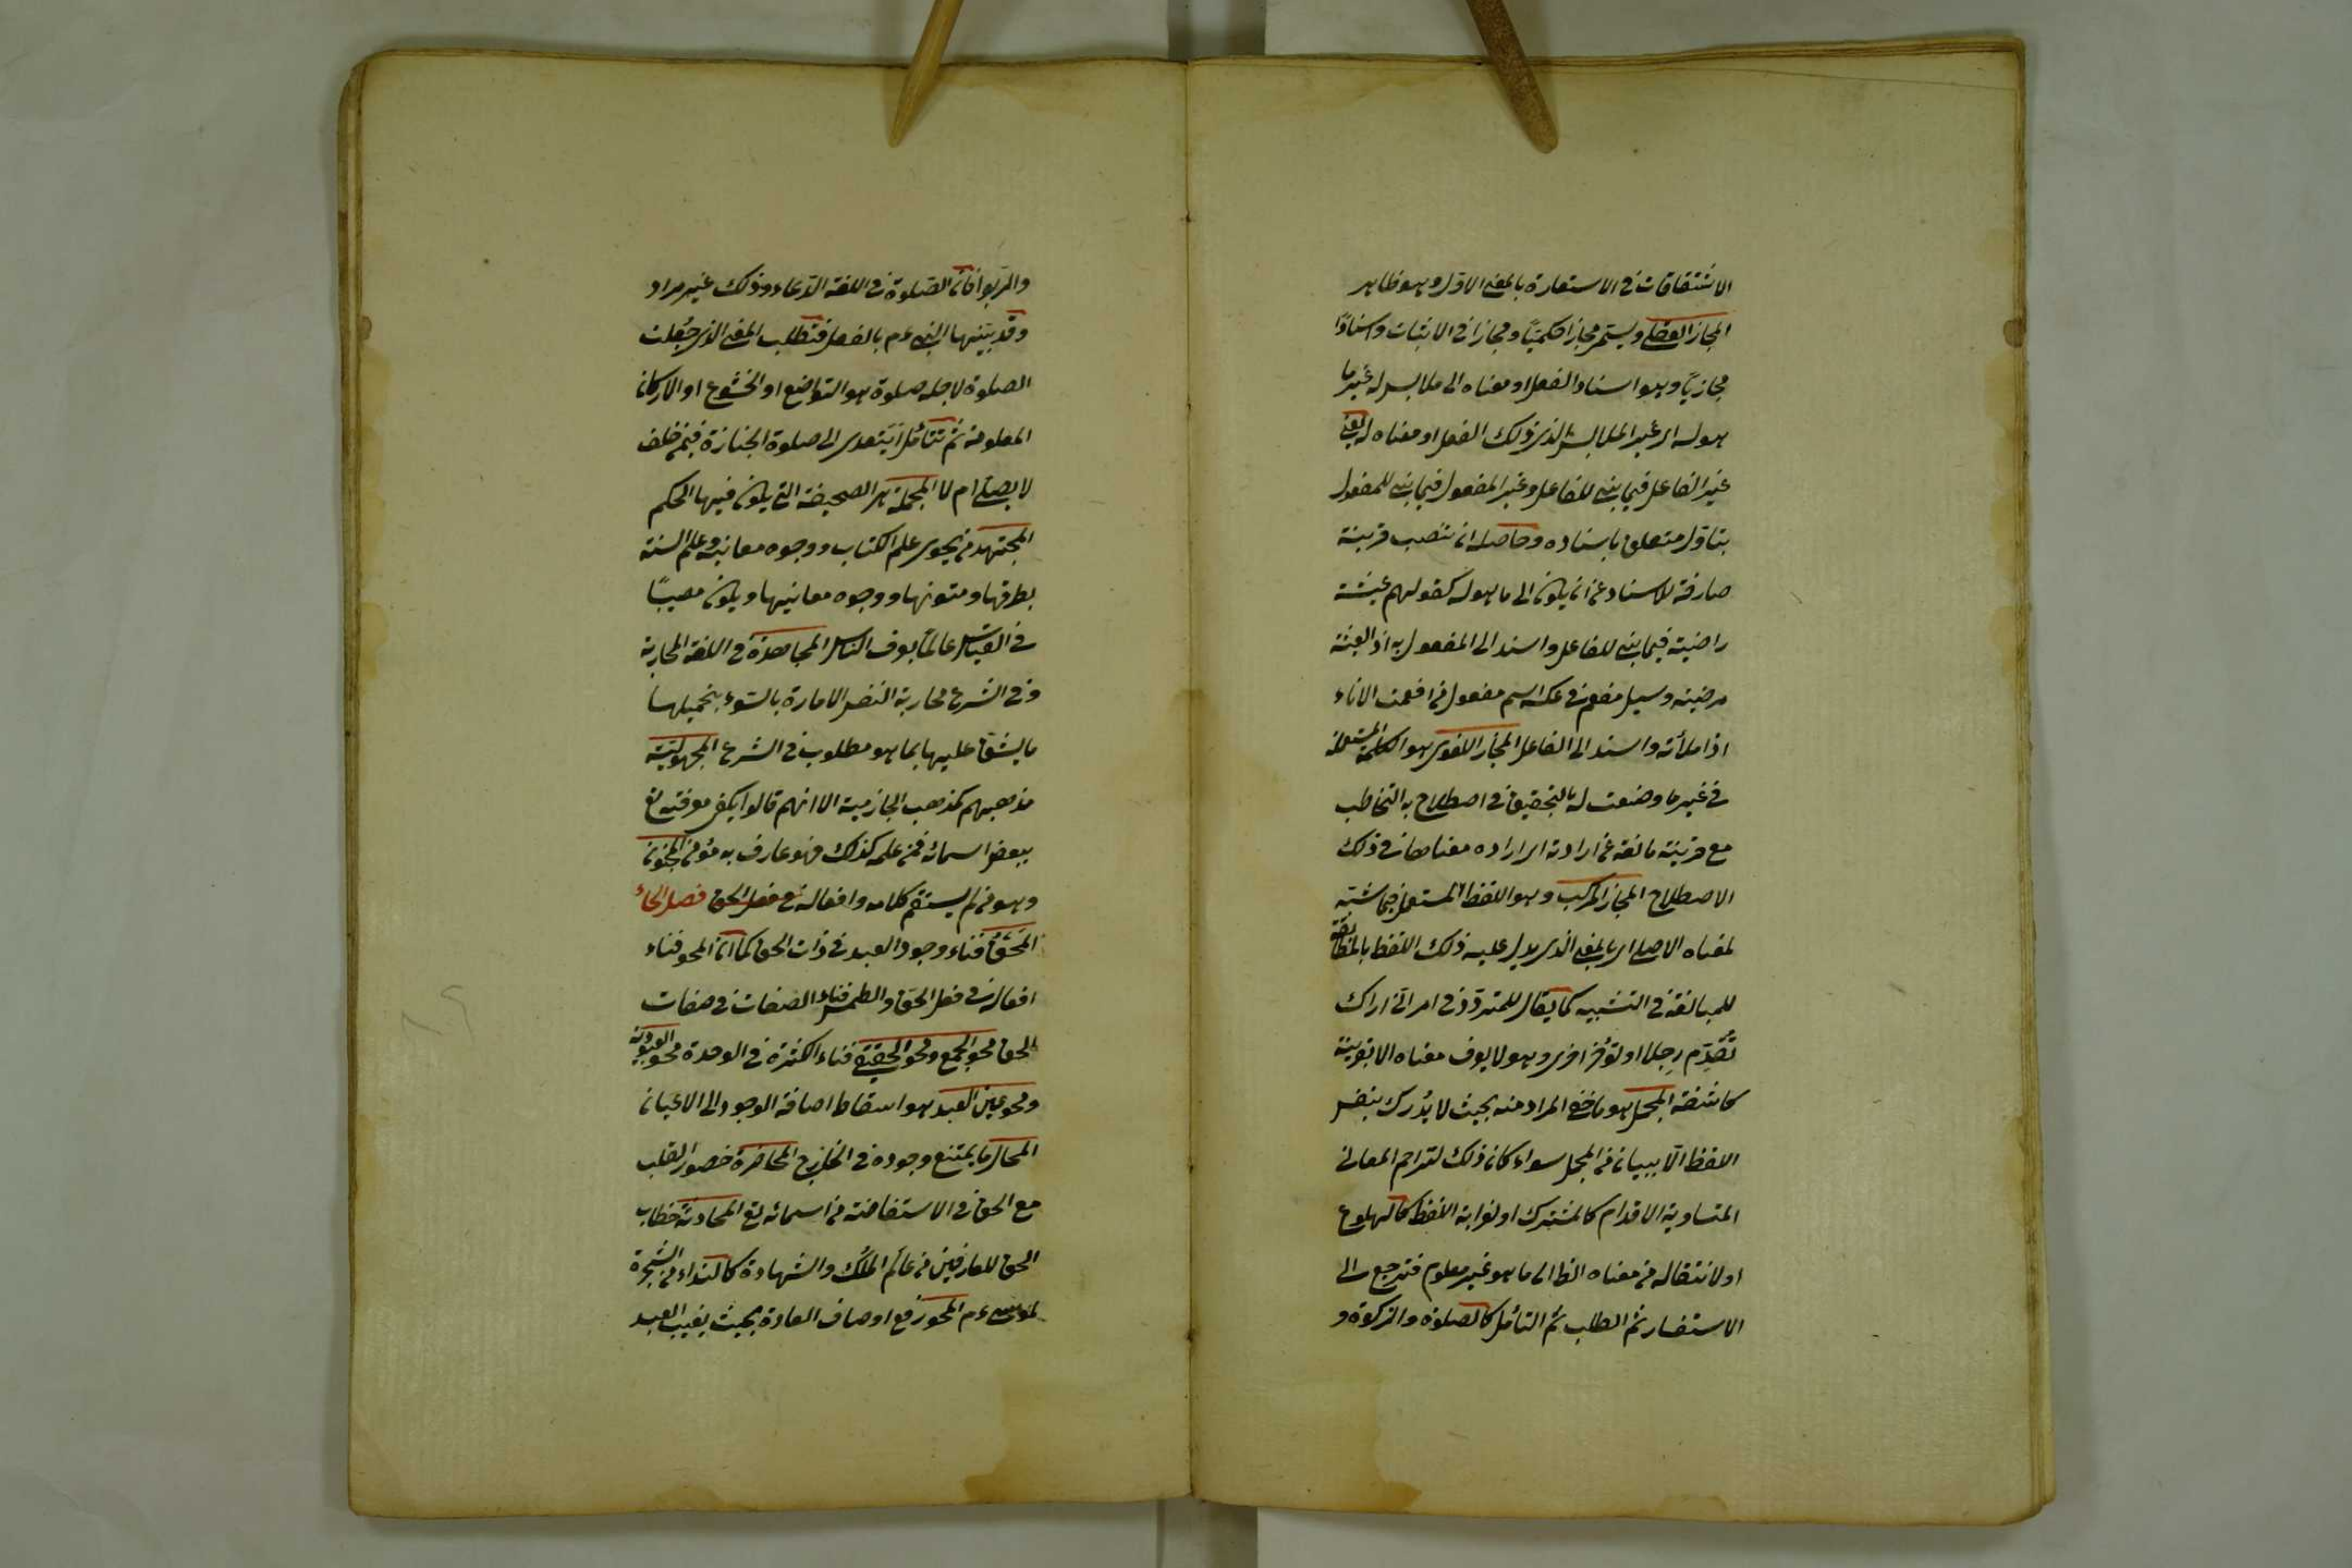 الاشتقاقات في الاستعارة بالمعنى الاول وهو ظاهر
المجاز العقلي ويسمى مجازا حكميّا ومجازا في الاثبات واسنادًا
مجازيّا وهو اسناد الفعل او معناه الى ملابس له غير ما
هو له اى غير الملابس الذى ذلك الفعل او معناه له يعنى
غير الفاعل فيما بنى للفاعل وغير المفعول فيما بنى للمفعول
بتأول متعلق باسناده وحاصله ان تنصب قرينة
صارفة للاسناد عن ان يكون الى ما هو له كقولهم عيشة
راضية فيما بنى للفاعل واسند الى المفعول به اذ العيشة
مرضية وسيل مفعم في عكسه اسم مفعول من افعمت الاناء
اذا ملأته واسند الى الفاعل المجاز اللغوى هو الكلمة المستعملة
في غير ما وضعت له بالتحقيق في اصطلاح به التخاطب
مع قرينة مانعة عن ارادته اى ارادة معناها في ذلك
الاصطلاح المجاز المركب وهو اللفظ المستعمل فيما شبّه
لمعناه الاصلى اى بالمعنى الذى يدل عليه ذلك اللفظ بالمطابقة
للمبالغة في التشبيه كما يقال للمتردّد في امر انّى اراك
تُقدّم رجلا و تؤخر اخرى وهو لا يعرف معناه الا بقرينة
كاشفة المجمل هو ما خفى المراد منه بحيث لا يُدرك بنفس
اللفظ الّا ببيان من المجمل سواء كان ذلك لتزاحم المعانى
المتساوية الاقدام كالمشترك او لغرابة اللفظ كالهلوع
او لانتقاله من معناه الظ الى ما هو غير معلوم فترجع الى
الاستفسار ثم الطلب ثم التأمل كالصلوة والزكوة و
والربوا فانّ الصّلوة في اللغة الدّعاء وذلك غير مراد
وقد بيّنها النبى ءم بالفعل فتطلب المعنى الذى جُعلت
الصلوة لاجله صلوة هو التواضع او الخشوع او الاركان
المعلومة ثم تتأمّل ايتعدى الى صلوة الجنازة فيمن حلف
لا يصلى ام لا المجلة هى الصحيفة التى يكون فيها الحكم
المجتهد من يحوى علم الكتاب ووجوه معانيه وعلم السنة
بطرقها ومتونها ووجوه معانيها ويكون مصيبًا
في القياس عالمًا بعرف الناس المجاهدة في اللغة المحاربة
وفي الشرع محاربة النفس الامارة بالسّوء بتحميلها
ما يشقّ عليها بما هو مطلوب في الشرع المجهوليّة
مذهبهم كمذهب الجازمية الا انهم قالوا يكفى معرفته تع
ببعض اسمائه فمن علمه كذلك فهو عارف به مؤمن المجنون
وهو من لم يستقم كلامه وافعاله فصل الحاء
المَحَقُ فناء وجود العبد في ذات الحق كما ان المحو فناء
افعاله في فعل الحق والطمس فناء الصفات في صفات
الحق محو الجمع ومحو الحقيقى فناء الكثرة في الوحدة محو العبودية
ومحو عين العبد هو اسقاط اضافة الوجود الى الاعيان
المحال ما يمتنع وجوده في الخارج المحاضرة حضور القلب
مع الحق في الاستفاضة من اسمائه تع المحادثة خطاب
الحق للعارفين من عالم الملك والشهادة كالنداء من الشجرة
لموسى ءم المحو رفع اوصاف العادة بحيث يغيب العبد